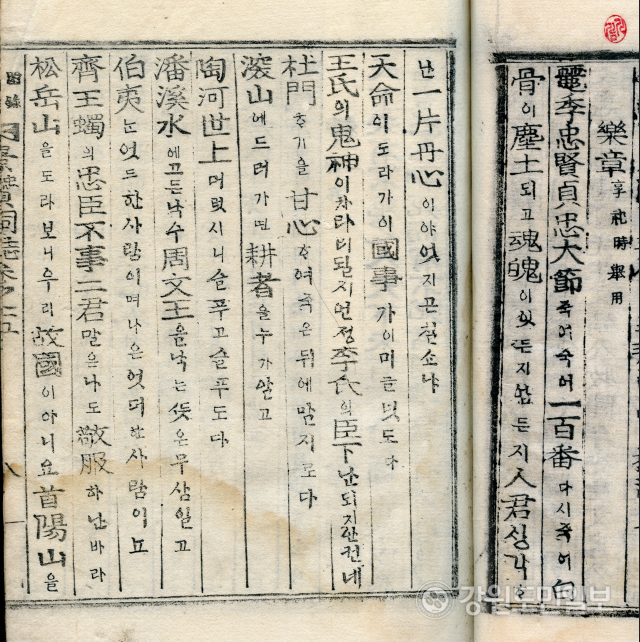 樂章 享祀時擧用
麗季忠賢貞忠大節 죽어 죽어 一百番 다시 죽어 白
骨이 塵土 되고 魂魄이 잇든지 업든지 人君 싱각
난 一片丹心이야 잇지 끈칠소냐
天命이 도라가이 國事가 이미 글넛도다
王氏의 鬼神이 차라리 될지언정 李氏의 臣下난 되지 안컨네
杜門하기을 甘心하여 죽은 뒤에 말지로다
深山에 드러가면 耕者을 누가 알고
陶河世上 머럿시니 슬푸고 슬푸도다
潘溪水에 끄든 낙수 周文王을 낙는 뜻은 무삼 일고
伯夷는 엇드한 사람이며 나은 엇더한 사람이뇨
齊王蠋의 忠臣不事二君 말은 나도 敬服하난 바라
松岳山을 도라보니 우리 故國이 아니요 首陽山을
附錄
강원도민일보